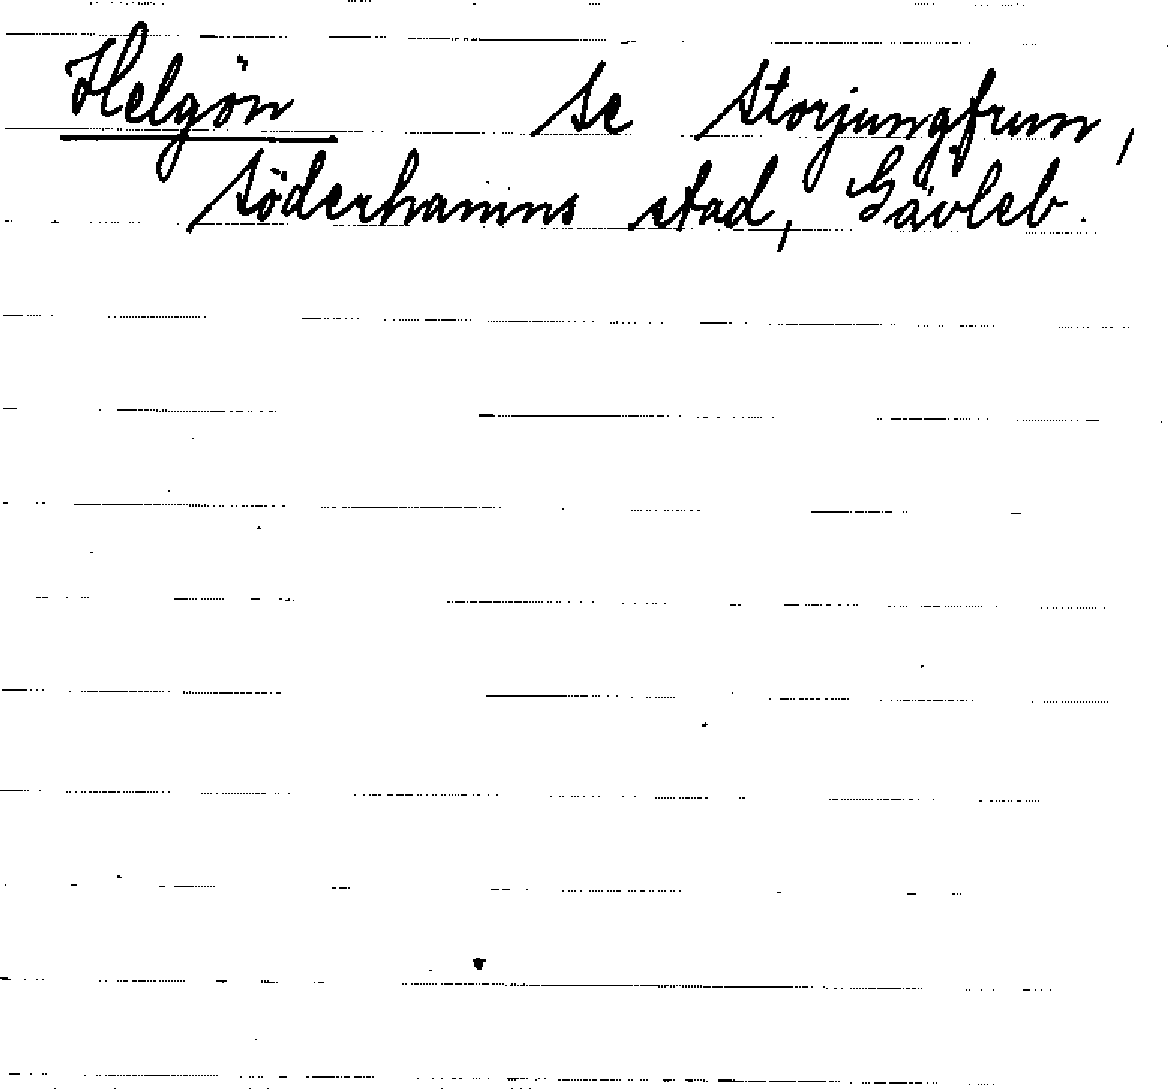 Helgön se Storjungfrun,
Söderhamns stad, Gävleb.